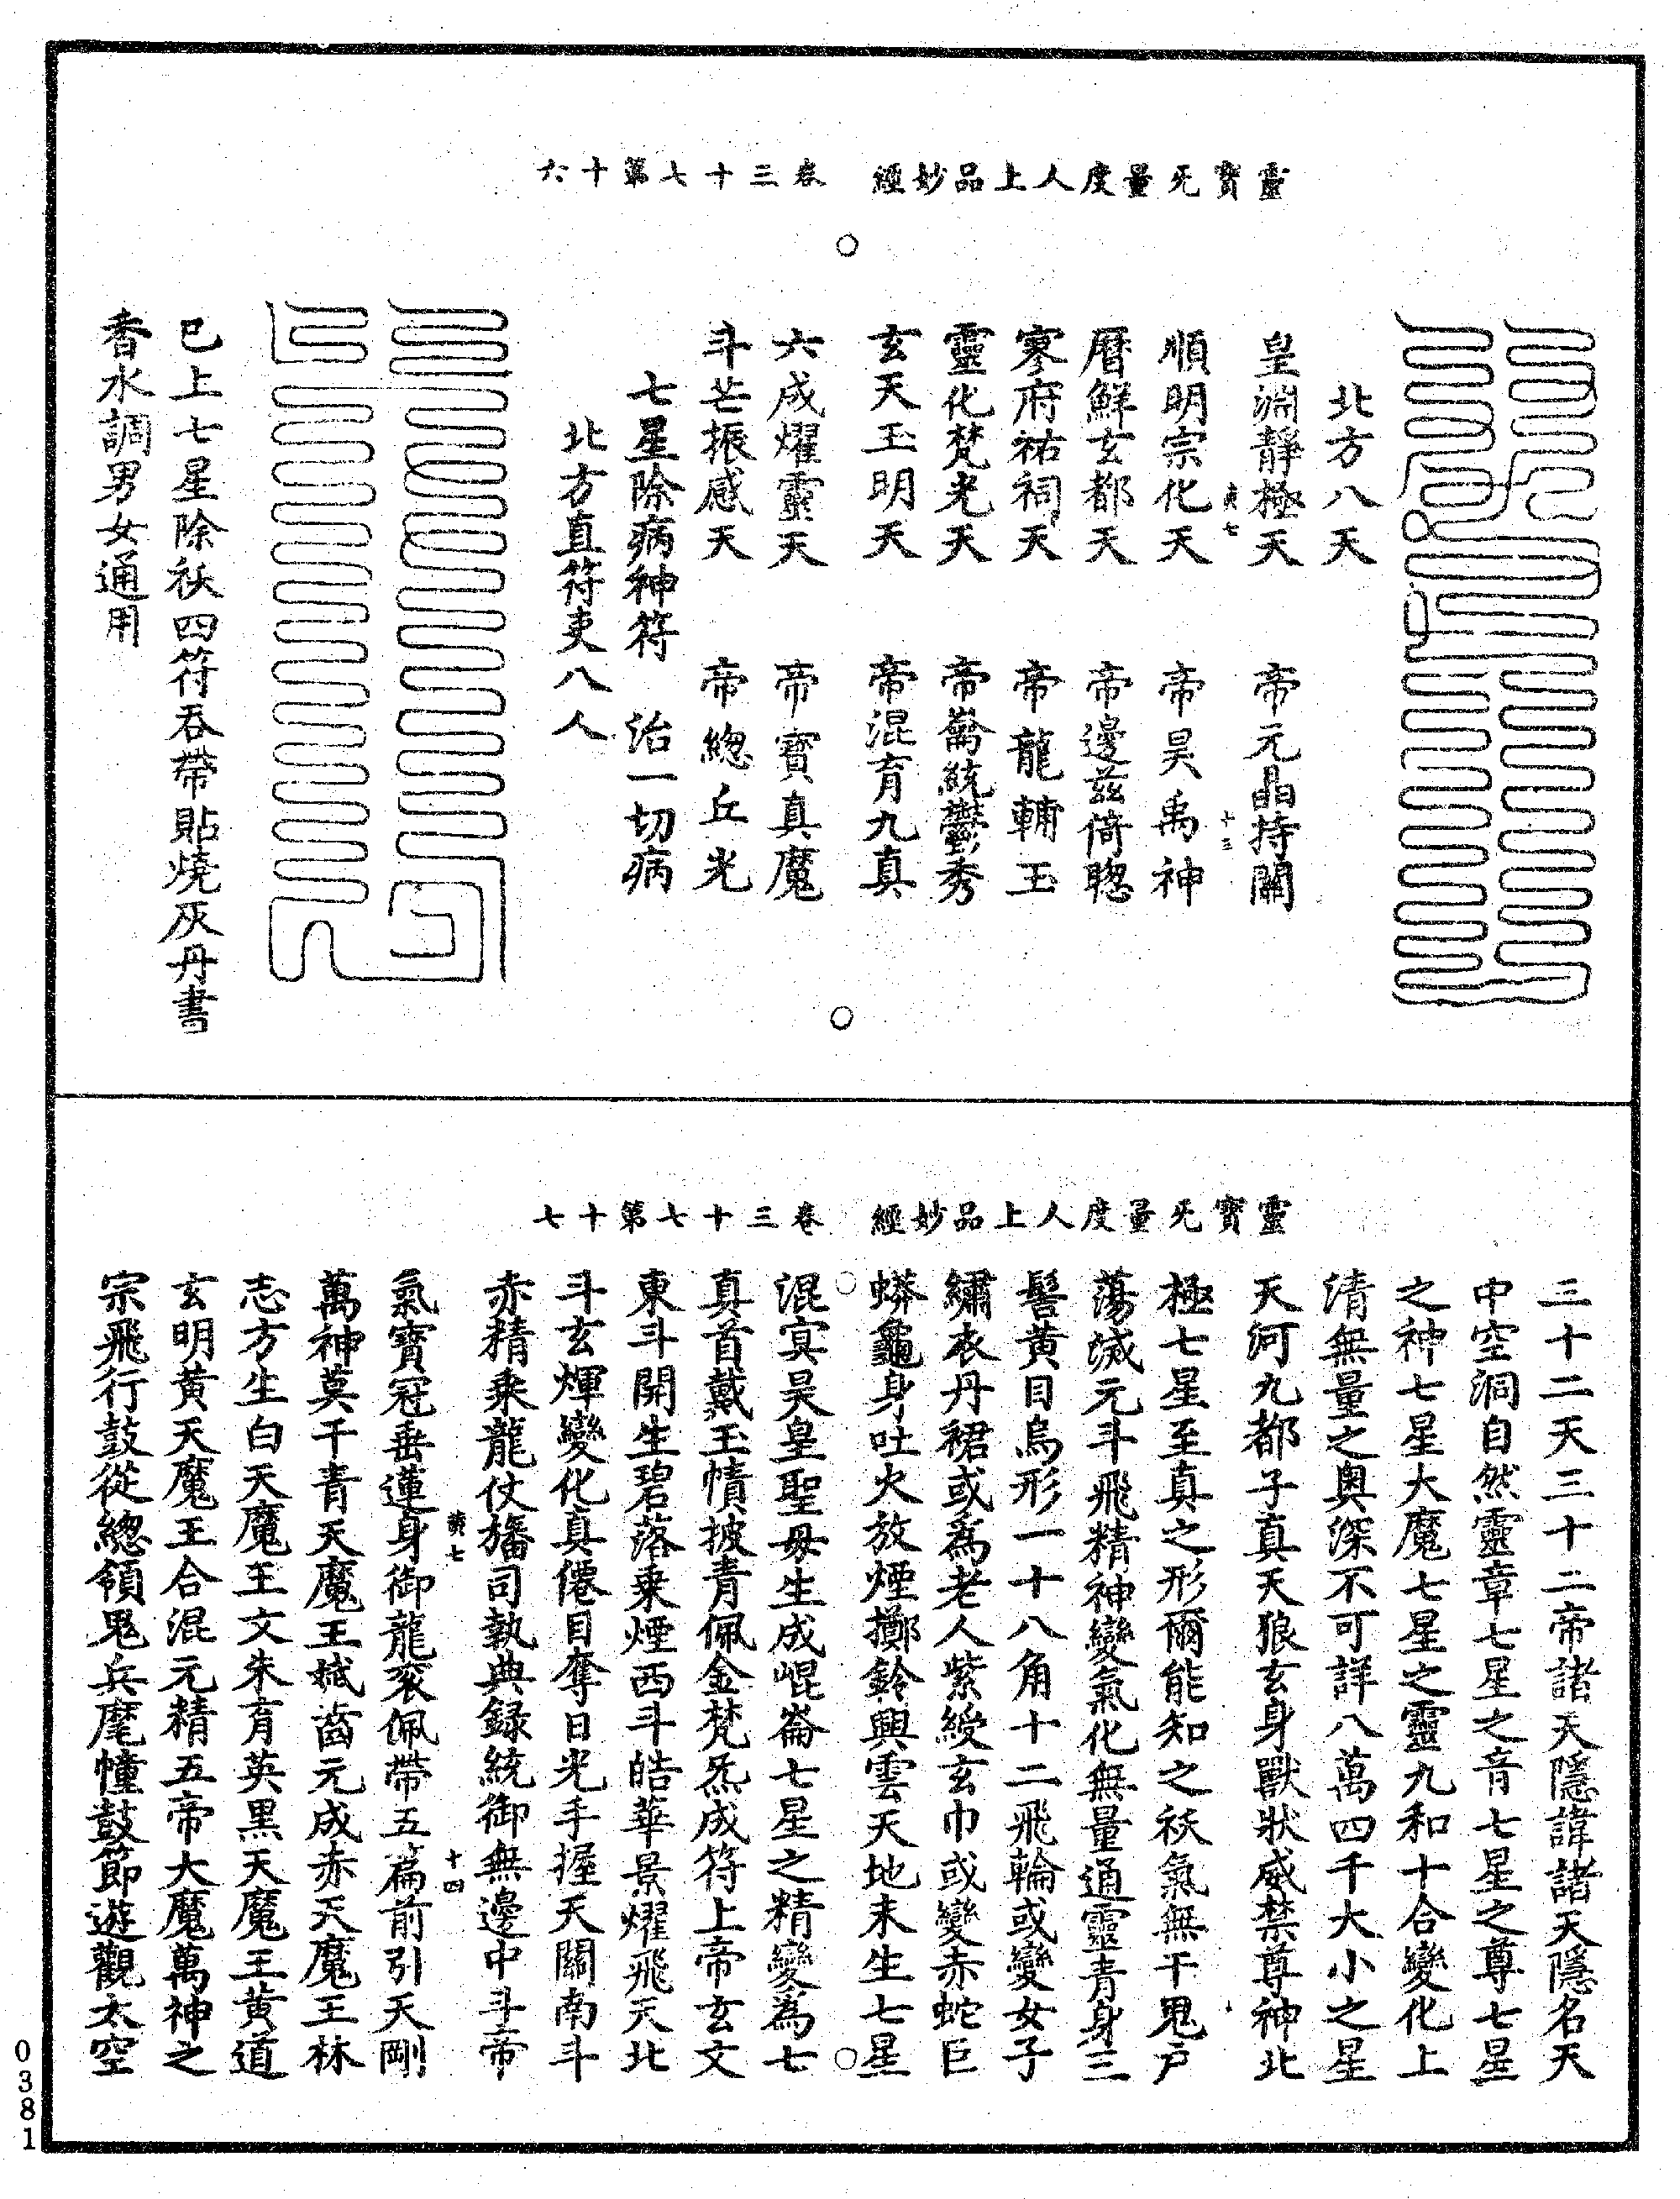 靈寶无量度人上品妙經　卷三十七第十六
北方八天
皇淵靜極天　帝元晶持關
黃七　十三
順明宗化天　帝昊禹神
曆鮮玄都天　帝邊茲倚聰
寥府祐祠天　帝龍輔玉
靈化梵光天　帝崙統鬱秀
玄天玉明天　帝混育九真
六成燿靈天　帝寶真魔
斗芒振感天　帝總丘光
七星除病神符　治一切病
北方直符吏八人
已上七星除祅四符吞帶貼燒灰丹書
香水調男女通用
靈寶无量度人上品妙經　卷三十七第十七
三十二天三十二帝諸天隱諱諸天隱名天
中空洞自然靈章七星之音七星之尊七星
之神七星大魔七星之靈九和十合變化上
清無量之奧深不可詳八萬四千大小之星
天河九都子真天狼玄身獸狀威禁尊神北
極七星至真之形爾能知之祅氣無干鬼戶
蕩滅元斗飛精神變氣化無量通靈青身三
髻黃目烏形一十八角十二飛輪或變女子
繡衣丹裙或爲老人紫綬玄巾或變赤蛇巨
蟒龜身吐火放煙擲鈴興雲天地末生七星
混㝠昊皇聖母生成崐崙七星之精變為七
真首戴玉幘披青佩金梵炁成符上帝玄文
東斗開生碧落乘煙西斗皓華景燿飛天北
斗玄煇變化真僊目奪日光手握天關南斗
赤精乘龍仗旛司執典録統御無邊中斗帝
黃七　十四
氣寶冠垂蓮身御龍袞佩帶五篇前引天剛
萬神莫干青天魔王娬齒元成赤天魔王林
志方生白天魔王文朱育英黑天魔王黃道
玄明黃天魔王合混元精五帝大魔萬神之
宗飛行鼓從總領鬼兵麾幢鼓節遊觀太空
0381